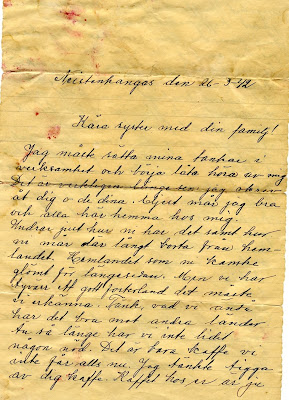 Neistenkangas den 26-3-42
Kära syster med din familj!
Jag måste sätta mina tankar i
verksamhet och börja låta höra av mig
Det är verkligen länge sen jag skrev
åt dig o de dina. Mycket mår jag bra
och alla här hemma hos mig.
Undrar just hur ni har det samt hur
ni mår där långt borta från hem-
landet. Hemlandet som ni kanske
glömt för längesedan. Men vi har
dyrbart gott fosterland det måste
vi erkänna. Tänk, vad vi ändå
har det bra mot andra länder
Än så länge har vi inte lidit
någon nöd. Det är bara kaffe vi
inte får alls nu. Jag tänkte tigga
av dig kaffe. Kaffet hos er är ju